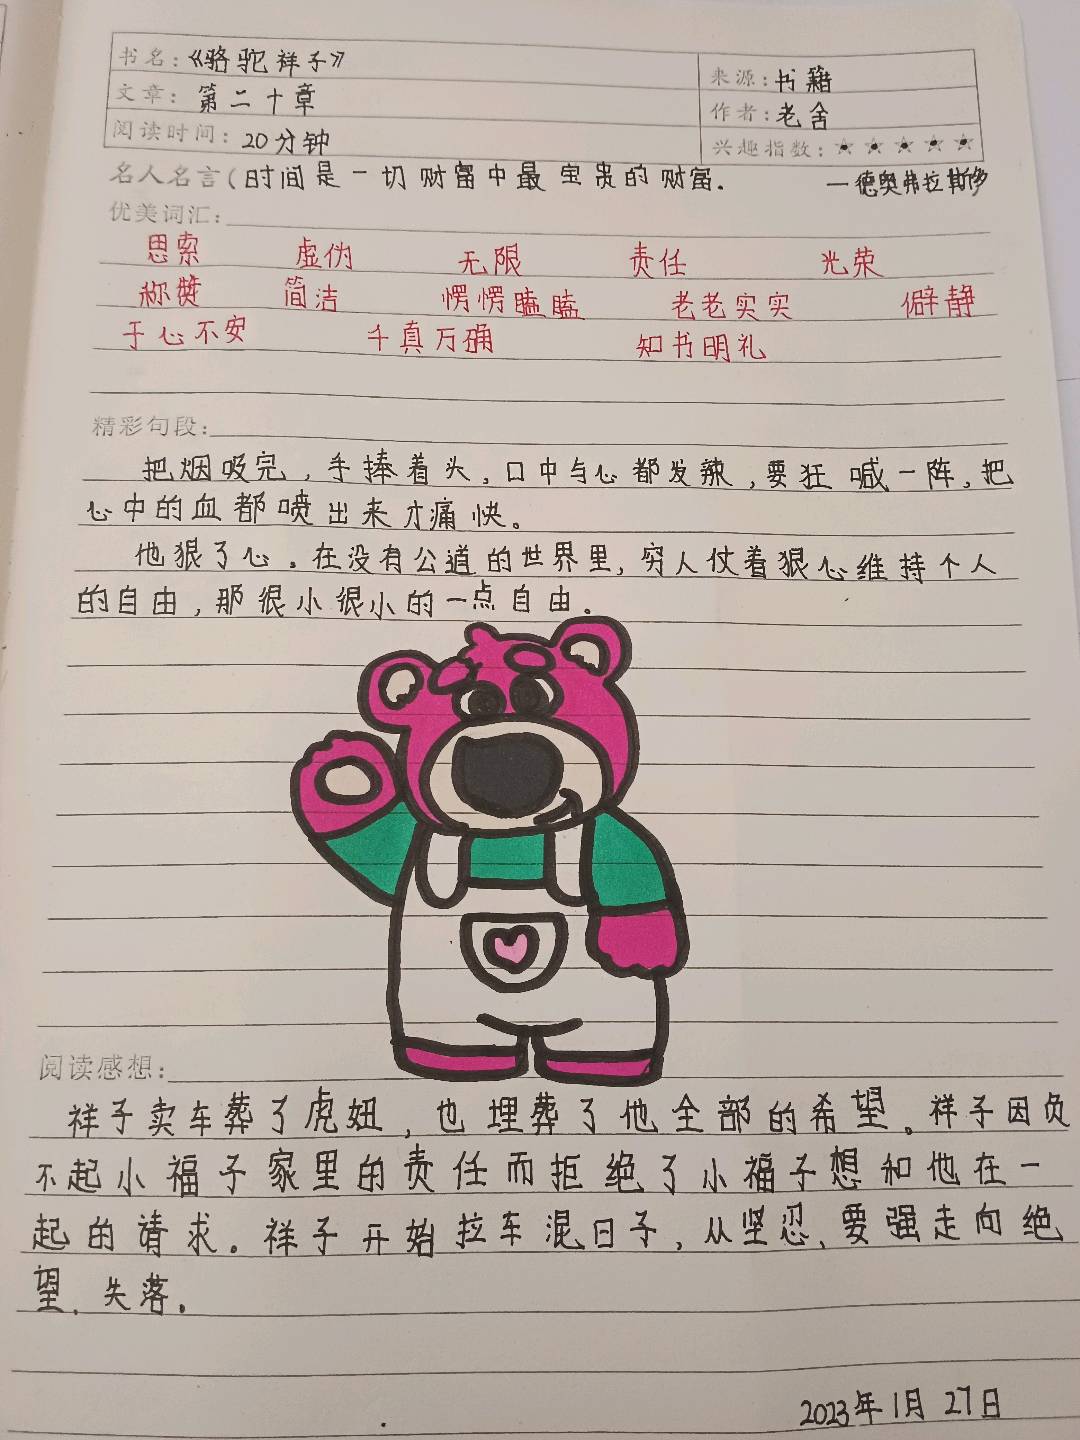 书名：《骆驼祥子》 来源：书籍
文章：第二十章 作者：老舍
阅读时间：20分钟 兴趣指数：★★★★★
名人名言(时间是一切财富中最宝贵的财富. —德奥弗拉斯多
优美词汇：
思索 虚伪 无限 责任 光荣
称赞 简洁 愣愣瞌瞌 老老实实 僻静
于心不安 千真万确 知书明礼
精彩句段：
把烟吸完，手捧着头，口中与心都发辣，要狂喊一阵，把
心中的血都喷出来才痛快。
他狠了心。在没有公道的世界里，穷人仗着狠心维持个人
的自由，那很小很小的一点自由。
阅读感想：
祥子卖车葬了虎妞，也埋葬了他全部的希望。祥子因负
不起小福子家里的责任而拒绝了小福子想和他在一
起的请求。祥子开始拉车混日子，从坚忍、要强走向绝
望、失落。
2023年1月27日